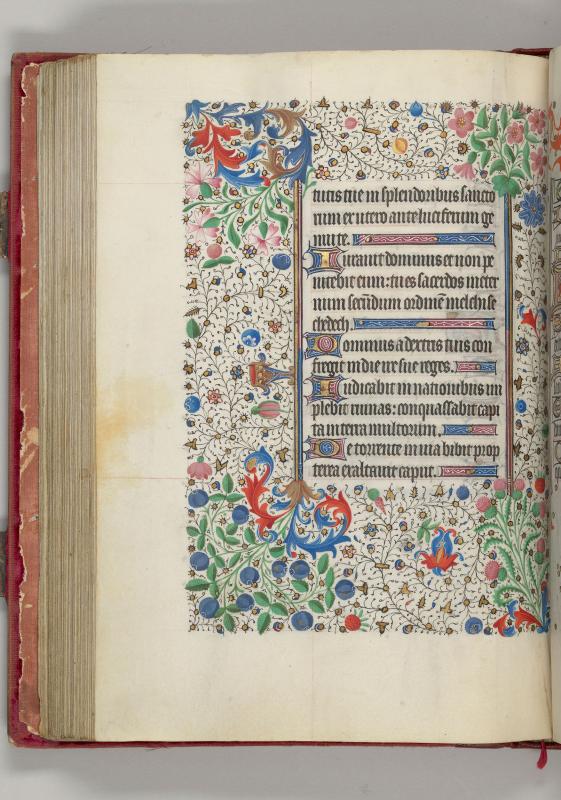 tutis tue in splendoribus sancto
rum ex utero ante luciferum ge
nui te.
Iurauit dominus et non pe
nitebit eum: tu es sacerdos in eter
num secundum ordinem melchise
dech
Dominus a dextris tuis con
fregit in die ire sue reges.
Iudicabit in nationibus im
plebit ruinas: conquassabit capi
ta in terra multorum.
De torrente in uia bibit prop
terea exaltauit caput.